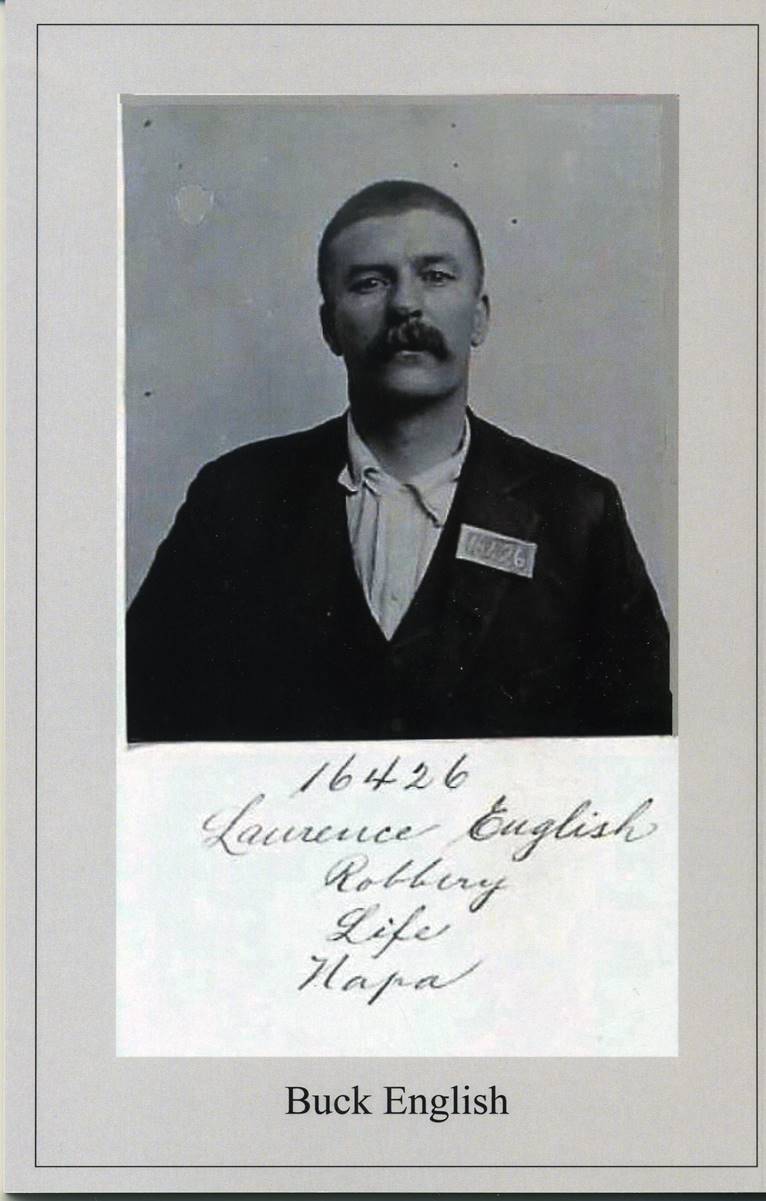 16426
Laurence English
Robbery
Life
Napa
Buck English